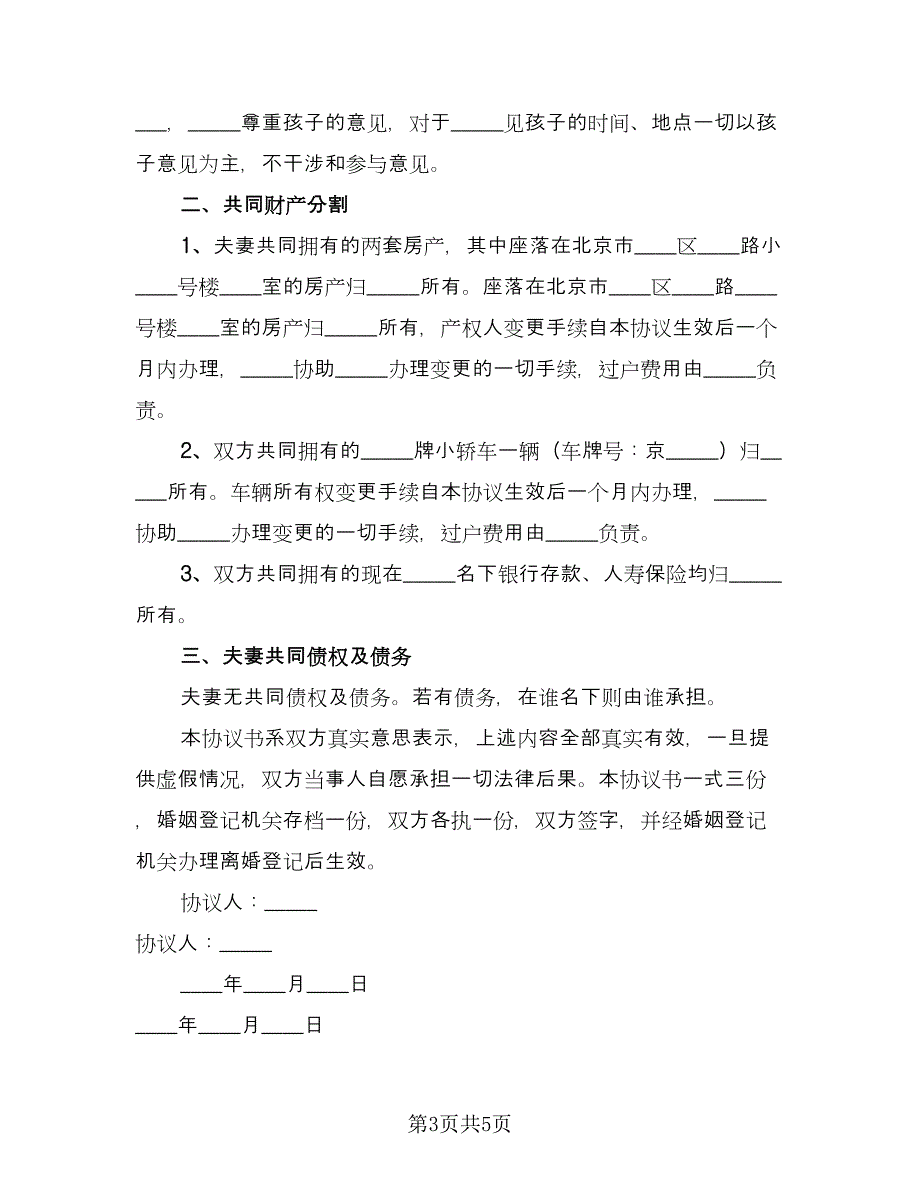 ___，_____尊重孩子的意见，对于_____见孩子的时间、地点一切以孩
子意见为主，不干涉和参与意见。
二、共同财产分割
1、夫妻共同拥有的两套房产，其中座落在北京市____区____路小
____号楼____室的房产归_____所有。座落在北京市____区____路____
号楼____室的房产归_____所有，产权人变更手续自本协议生效后一个
月内办理，_____协助_____办理变更的一切手续，过户费用由_____负
责。
2、双方共同拥有的_____牌小轿车一辆（车牌号：京_____）归__
___所有。车辆所有权变更手续自本协议生效后一个月内办理，_____
协助_____办理变更的一切手续，过户费用由_____负责。
3、双方共同拥有的现在_____名下银行存款、人寿保险均归_____
所有。
三、夫妻共同债权及债务
夫妻无共同债权及债务。若有债务，在谁名下则由谁承担。
本协议书系双方真实意思表示，上述内容全部真实有效，一旦提
供虚假情况，双方当事人自愿承担一切法律后果。本协议书一式三份
，婚姻登记机关存档一份，双方各执一份，双方签字，并经婚姻登记
机关办理离婚登记后生效。
协议人：_____
协议人：_____
____年____月____日
____年____月____日
第3页共5页